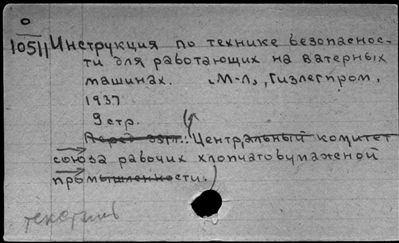 О
10511 Инструкция по технике безопаснос-
ти для работающих на ватерных
машинах. М-Л, Гизлегпром,
1937
9 стр.
Перед загл.: Центральный комитет
союза рабочих хлопчатобумажной
промышленности.
текстиль